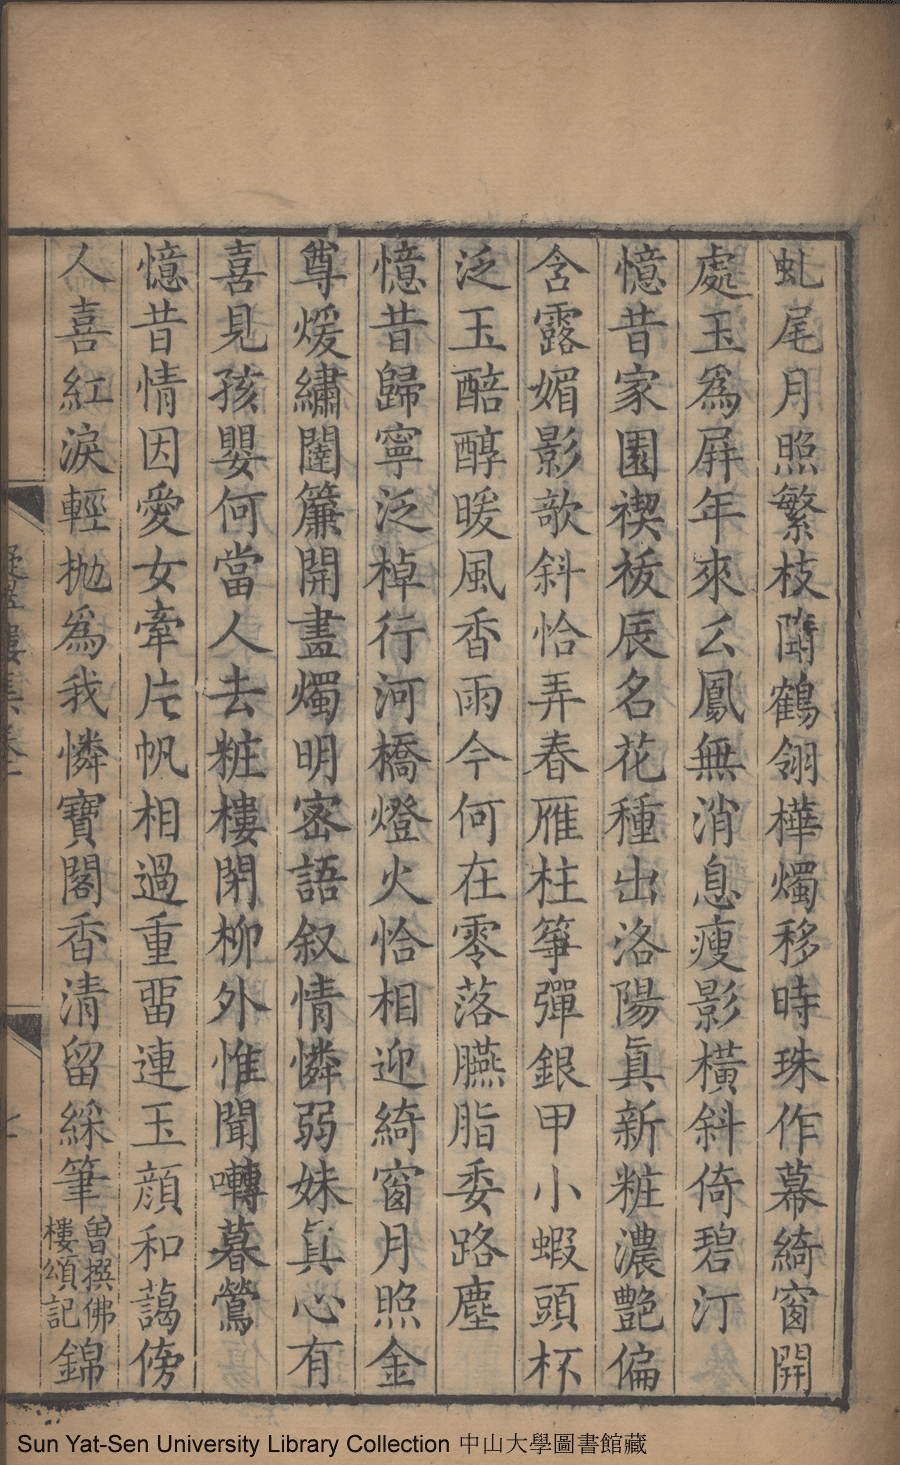 虬尾月照繁枝閒鶴翎樺燭移時珠作幕綺窗開
處玉為屏年來么鳳無消息瘦影橫斜倚碧汀
憶昔家園禊祓辰名花種出洛陽眞新粧濃艷偏
含露媚影欹斜恰弄春雁柱箏彈銀甲小蝦頭杯
泛玉醅醇暖風香雨今何在零落臙脂委路塵
憶昔歸寧泛棹行河橋燈火恰相迎綺窗月照金
尊煖繡闥簾開畫燭明密語叙情憐弱妹眞心有
喜見孩嬰何當人去粧樓閉柳外惟聞囀暮鶯
憶昔情因愛女牽片帆相過重畱連玉顔和藹傍
人喜紅淚輕抛為我憐寶閣香清留綵筆曾撰佛樓頌記錦
樓集卷
Sun Yat-Sen University Library Collection 中山大學圖書館藏